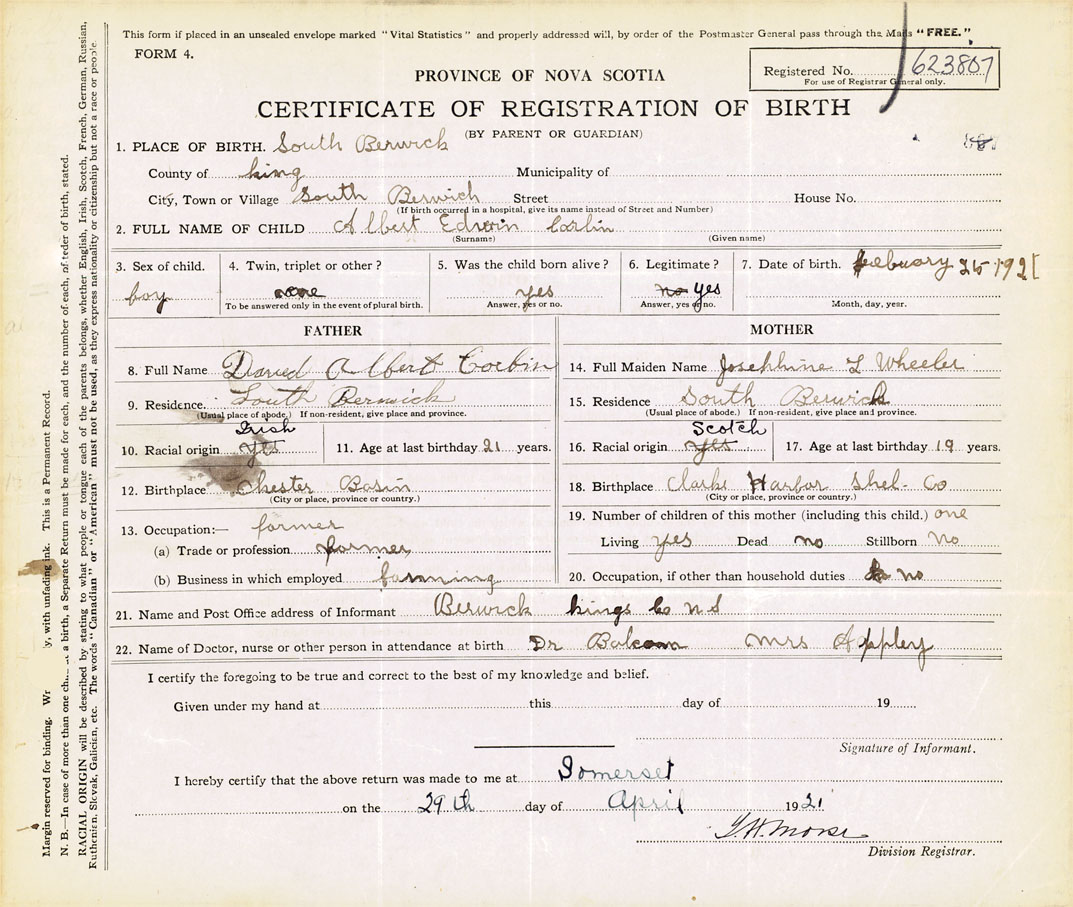 This form if placed in an unsealed envelope marked "Vital Statistics" and properly addressed will, by order of the Postmaster General pass through the Mails "FREE."
FORM 4.
Registered No. 623807
For use of Registrar General only.
PROVINCE OF NOVA SCOTIA
CERTIFICATE OF REGISTRATION OF BIRTH
(BY PARENT OR GUARDIAN)
1. PLACE OF BIRTH. South Berwick
County of king Municipality of
City, Town or Village South Berwick Street House No.
(If birth occurred in a hospital, give its name instead of Street and Number)
2. FULL NAME OF CHILD Albert Edwin Corbin
(Surname) (Given name)
3. Sex of child. 4. Twin, triplet or other? 5. Was the child born alive? 6. Legitimate? 7. Date of birth. febuary 25 1921
boy none yes no yes
To be answered only in the event of plural birth. Answer, yes or no. Answer, yes or no. Month, day, year.
FATHER MOTHER
8. Full Name David Albert Corbin 14. Full Maiden Name Josephine L Wheeler
9. Residence. South Berwick 15. Residence South Berwick
(Usual place of abode.) If non-resident, give place and province. (Usual place of abode.) If non-resident, give place and province.
Irish Scotch
10. Racial origin yes 11. Age at last birthday 21 years. 16. Racial origin yes 17. Age at last birthday 19 years.
12. Birthplace Chester Basin 18. Birthplace Clarks Harbor Shel- Co
(City or place, province or country.) (City or place, province or country.)
13. Occupation:— farmer 19. Number of children of this mother (including this child.) one
(a) Trade or profession farmer Living yes Dead no Stillborn No
(b) Business in which employed farming 20. Occupation, if other than household duties no
21. Name and Post Office address of Informant Berwick kings Co N S
22. Name of Doctor, nurse or other person in attendance at birth Dr Balcom Mrs Appley
I certify the foregoing to be true and correct to the best of my knowledge and belief.
Given under my hand at this day of 19
Signature of Informant.
I hereby certify that the above return was made to me at Somerset
on the 29th day of April 1921
Division Registrar.
Margin reserved for binding. Wr y, with unfading ink. This is a Permanent Record.
N. B.—In case of more than one ch a birth, a Separate Return must be made for each, and the number of each, of order of birth, stated.
RACIAL ORIGIN will be described by stating to what people or tongue each of the parents belongs, whether English, Irish, Scotch, French, German, Russian,
Ruthenian, Slovak, Galician, etc. The words "Canadian" or "American" must not be used, as they express nationality or citizenship but not a race or people.